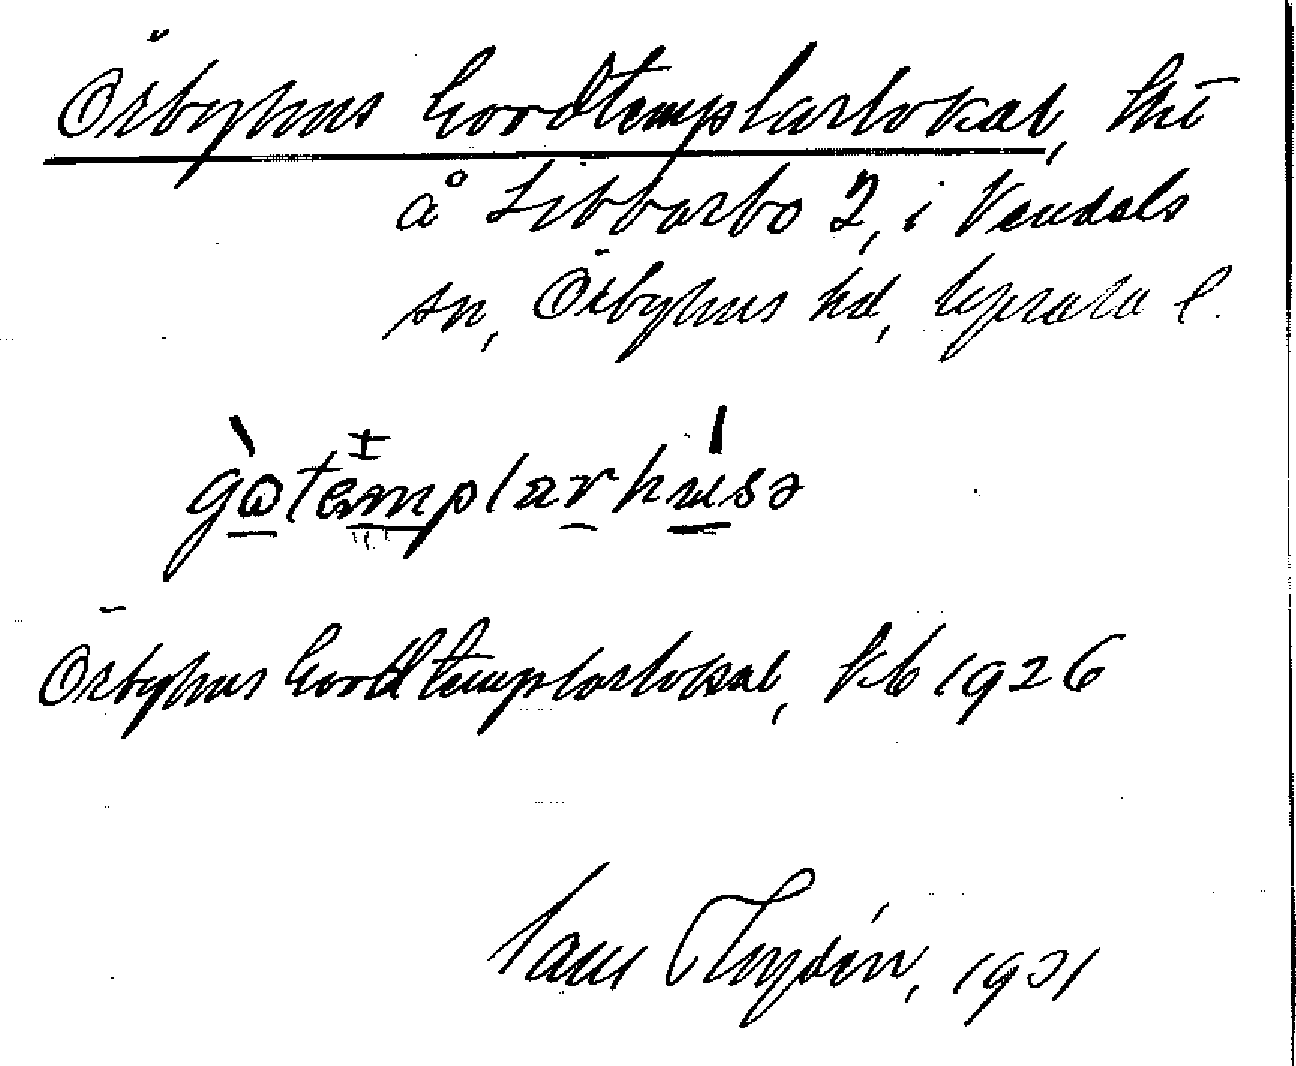 Örbyhus Goodtemplarlokal, lht
å Libbarbo 2, i Vendels
sn, Örbyhus hd, Uppsala l.
gòtemplarhúsə
Örbyhus Goodtemplarlokal, kb 1926
Sam Thydén, 1931